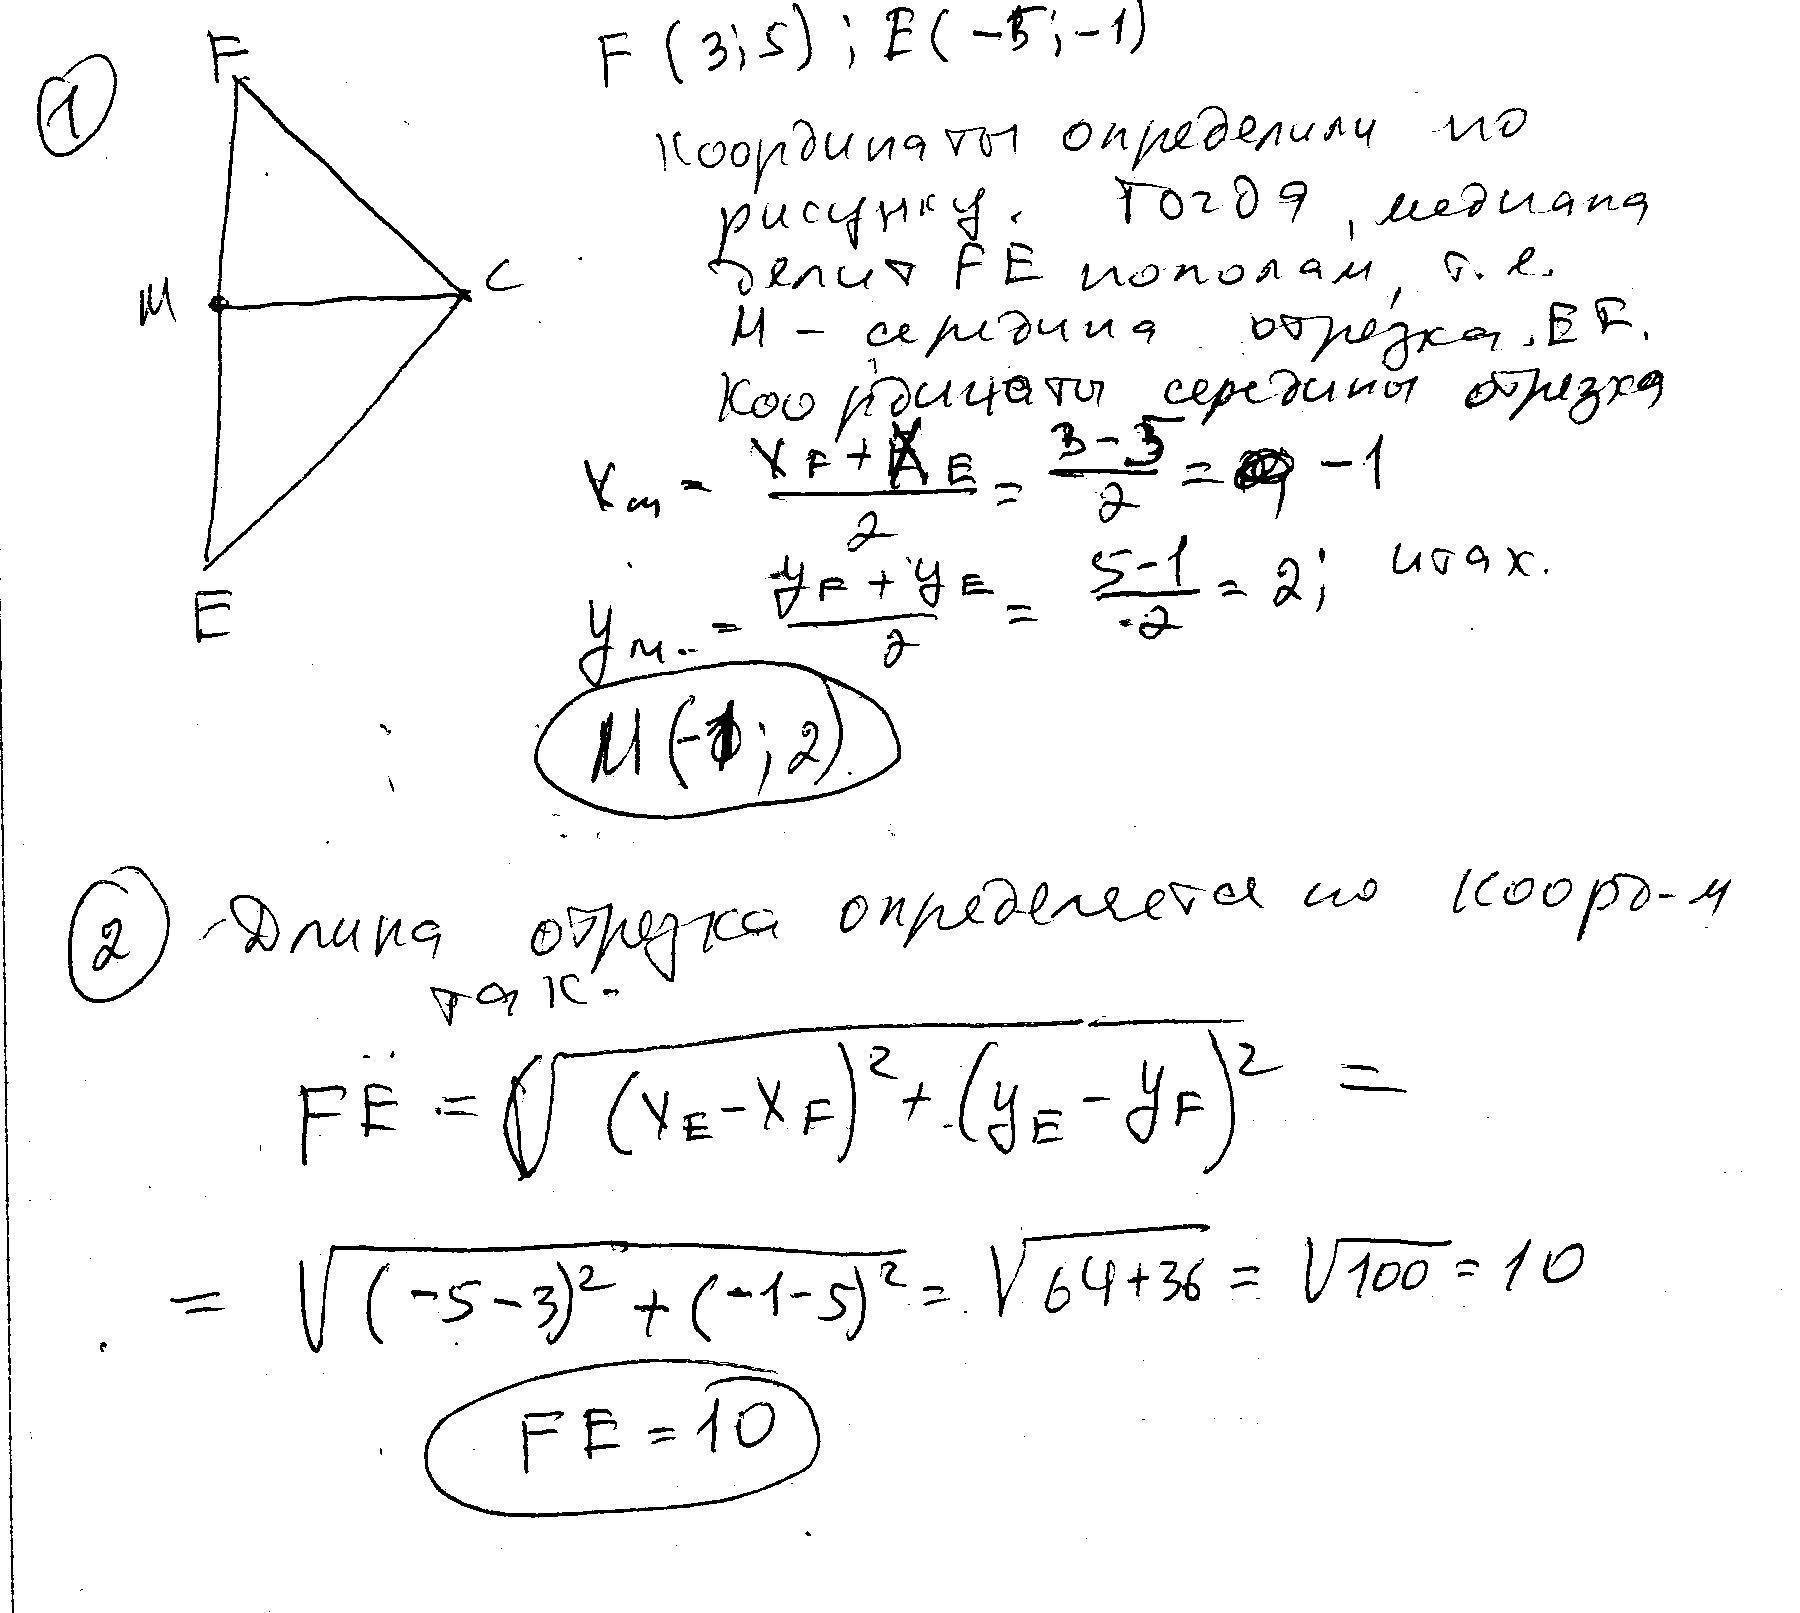 1
F
M
C
E
F (3;5); E(-5;-1)
Координаты определили по
рисунку. Тогда, медиана
делит FE пополам, т.е.
M - середина отрезка EF.
Координаты середины отрезка
xm = (xF + xE)/2 = (3-5)/2 = -1
yм = (yF + yE)/2 = (5-1)/2 = 2; итак.
M(-1; 2)
2 Длина отрезка определяется по коорд-м
так.
FE = √((xE - xF)² + (yE - yF)²) =
= √((-5-3)² + (-1-5)²) = √(64+36) = √100 = 10
FE = 10